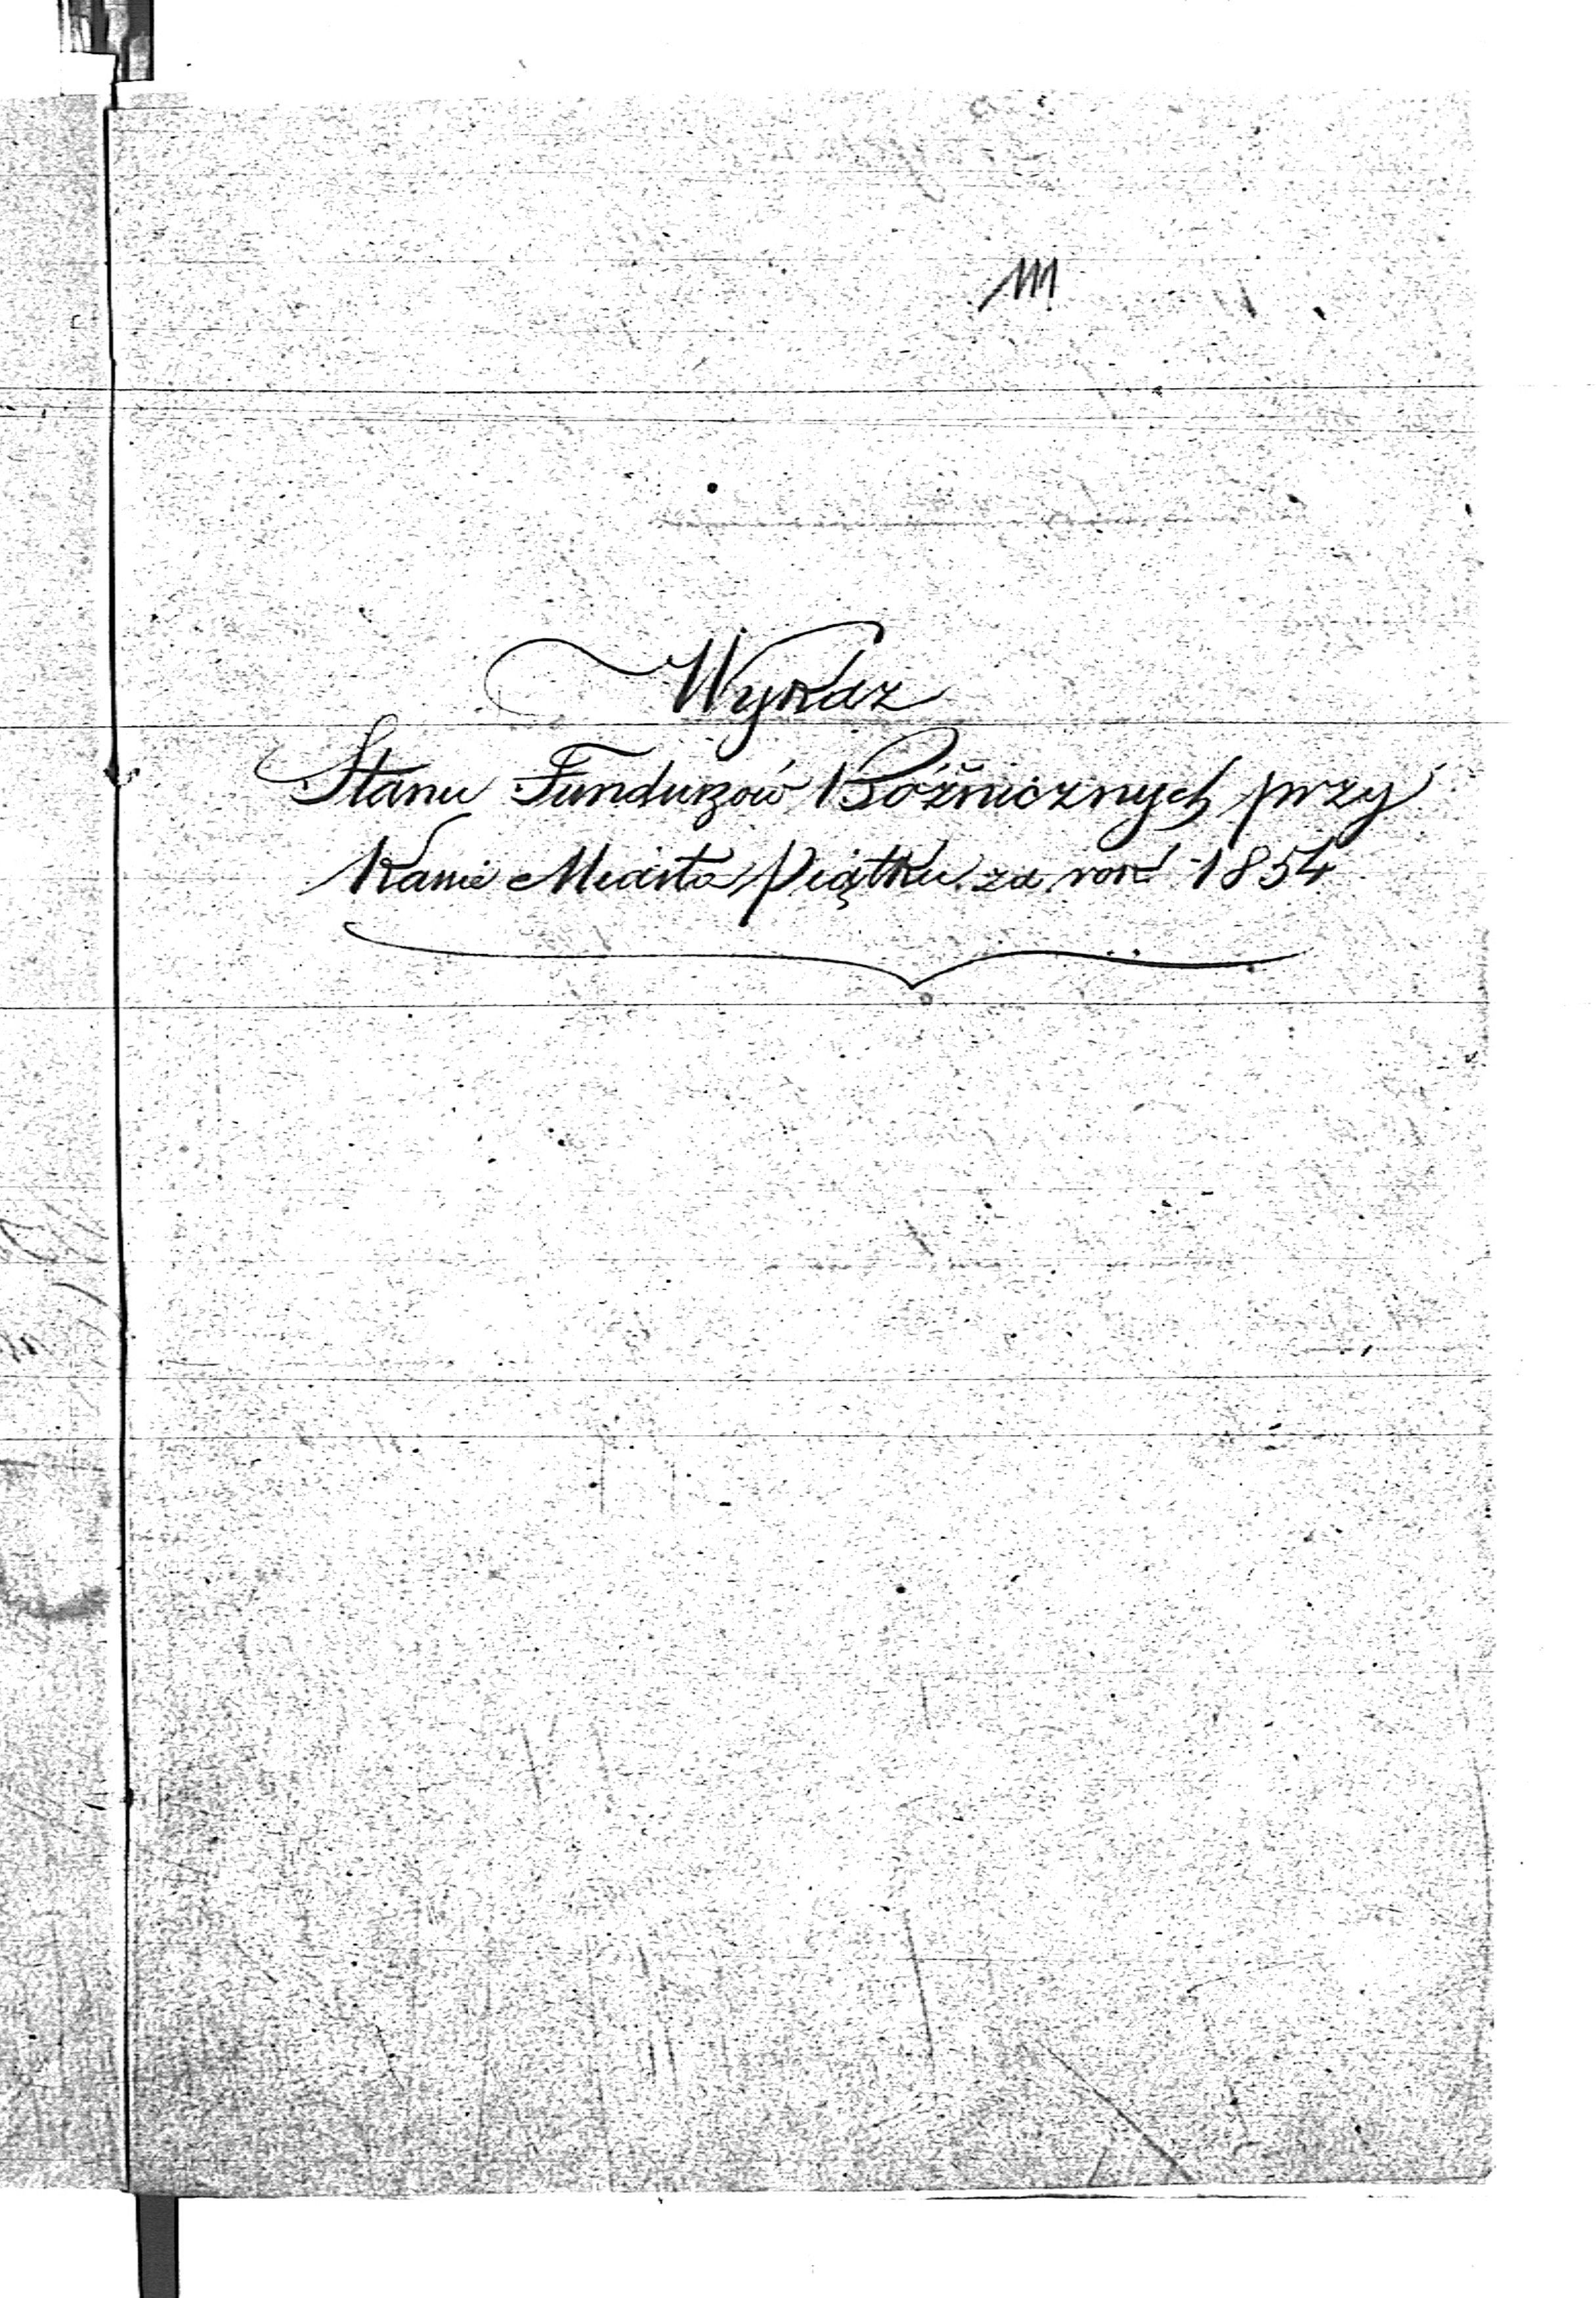 111
Wykaz
Stanu Funduszów Bóżnicznych przy
Kasie Miasta Piątku za rok 1854